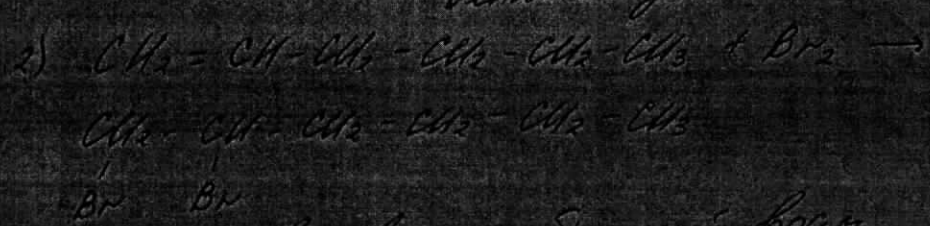 2) CH₂ = CH - CH₂ - CH₂ - CH₂ - CH₃ + Br₂ →
CH₂ - CH - CH₂ - CH₂ - CH₂ - CH₃
Br Br